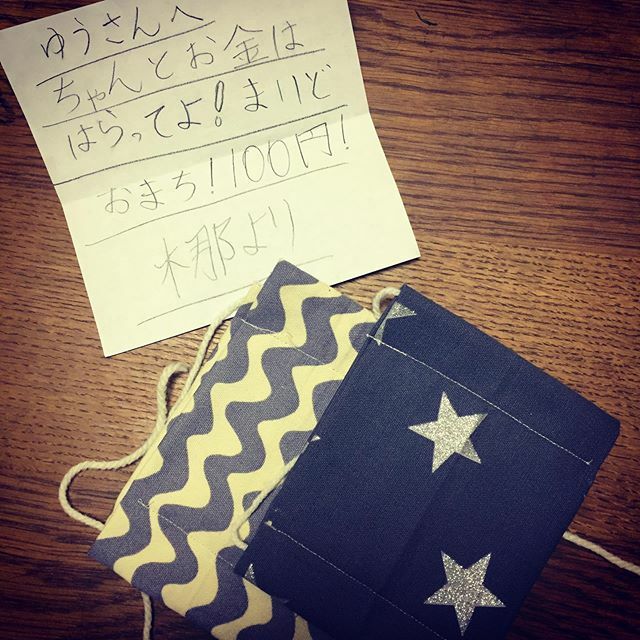 ゆうさんへ
ちゃんとお金は
はらってよ！まいど
おまち！100円！
木那より